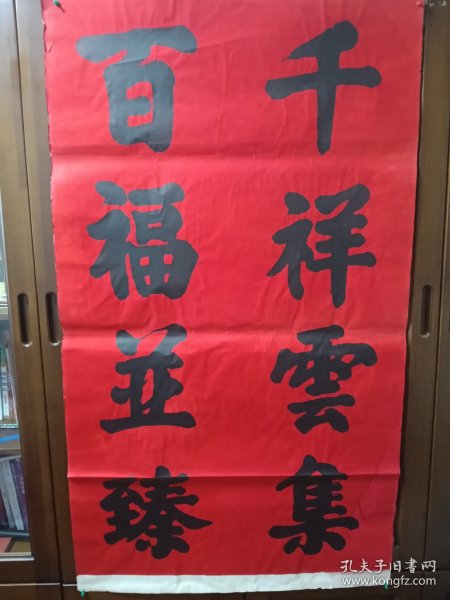 千祥雲集
百福並臻
孔夫子旧书网
www.kongfz.com